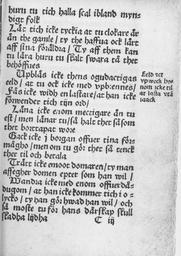 buru tu tich halla scal ibland myns
digt folk
Lat tich icke tyckia at tu clokare är
än the gamle / ty the haffua ock lärt
aff sina föräldra / Ty aff them kan
tu lära huru tu skalt swara tå ther
behöffues
Upblås icke thens ogudactigas
eeld / at tu icke med vpbrennes /
Läs icke widh en laskare / at han icke
förwender tich tijn ord /
Läna icke enom mectigare än tu
est / men länar tu / så halt thet såsom
thet bortcapat wore
Gack icke i borgan offuer tina för
mågho / men om tu gör thet så tenck
ther til och betala
Trätt icke emoot domaren / ty man
affegher domen epter som han wil /
Wandra icke med enom offuerdå-
dugom / at han icke kommer tich i o-
lycko / ty han gör hwad han wil /
så moste tu för hans dårskap skull
skadha lijdha
C iij
Eeld vet
vpweck hos
nom icke til
at lasta või
snack